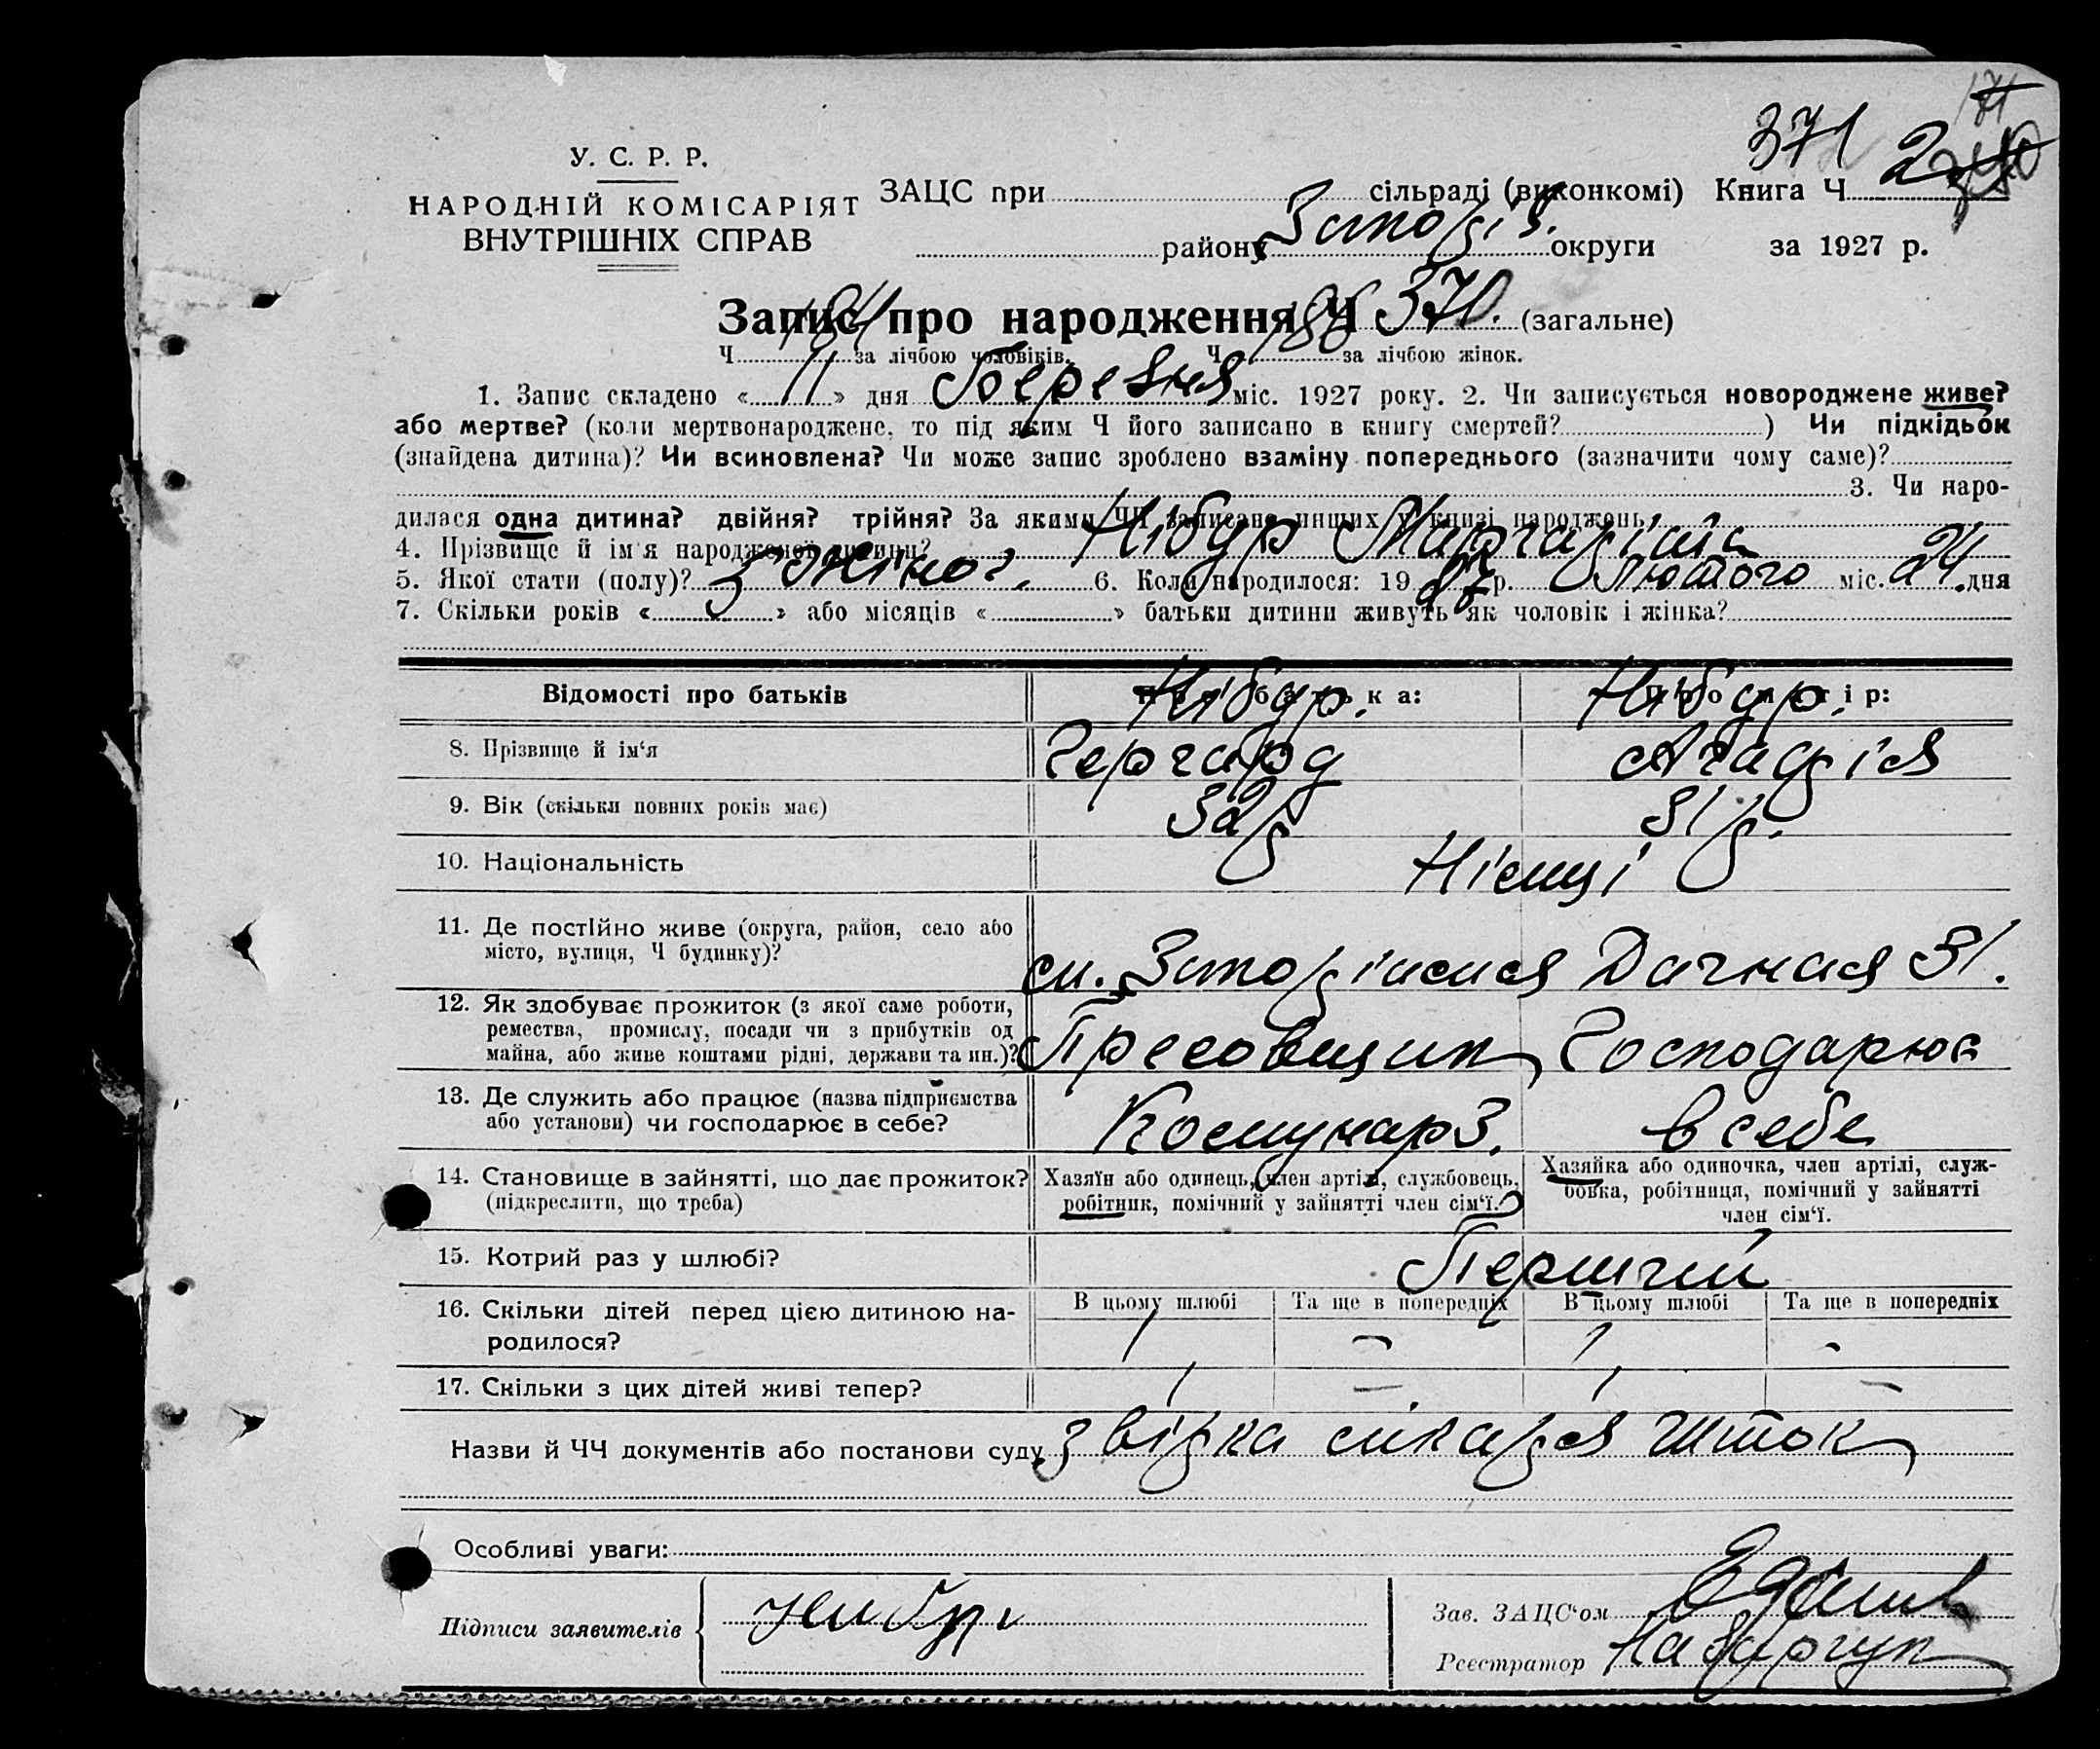 371
У. С. Р. Р.
НАРОДНІЙ КОМІСАРІЯТ
ВНУТРІШНІХ СПРАВ
ЗАЦС при сільраді (виконкомі) Книга Ч 2
району Запоріз. округи за 1927 р.
Запис про народження Ч 370. (загальне)
Ч 184 за лічбою чоловіків. Ч 186 за лічбою жінок.
1. Запис складено « 11 » дня Березня міс. 1927 року. 2. Чи записується новороджене живе?
або мертве? (коли мертвонароджене, то під яким Ч його записано в книгу смертей? ) Чи підкідьок
(знайдена дитина)? Чи всиновлена? Чи може запис зроблено взаміну попереднього (зазначити чому саме)?
3. Чи наро-
дилася одна дитина? двійня? трійня? За якими ЧЧ записане инших у книзі народжень
4. Прізвище й ім'я народженої дитини? Нібур Маргаріта
5. Якої стати (полу)? жіноч. 6. Коли народилося: 1927 р. Лютого міс. 24 дня
7. Скільки років « 5 » або місяців « » батьки дитини живуть як чоловік і жінка?
Відомості про батьків Про батька: Про матір:
Нібур. Нібур.
8. Прізвище й ім'я Гергард Агафія
9. Вік (скільки повних років має) 32 р 31 р.
10. Національність Німці
11. Де постійно живе (округа, район, село або
місто, вулиця, Ч будинку)? Дачная 31.
12. Як здобуває прожиток (з якої саме роботи,
ремества, промислу, посади чи з прибутків од
майна, або живе коштами рідні, держави та ин.)? Пресовщик Господарює
13. Де служить або працює (назва підприємства
або установи) чи господарює в себе? Комунар З. в себе
14. Становище в зайнятті, що дає прожиток?
(підкреслити, що треба)
Хазяїн або одинець, член артілі, службовець,
робітник, помічний у зайнятті член сім'ї.
Хазяйка або одиночка, член артілі, служ-
бовка, робітниця, помічний у зайнятті
член сім'ї.
15. Котрий раз у шлюбі? Перший
16. Скільки дітей перед цією дитиною на-
родилося?
В цьому шлюбі Та ще в попередніх В цьому шлюбі Та ще в попередніх
1 - 1 -
17. Скільки з цих дітей живі тепер? 1 - 1 -
Назви й ЧЧ документів або постанови суду звізка лікаря Шток
Особливі уваги:
Підписи заявителів Нибур
Зав. ЗАЦС'ом
Реєстратор